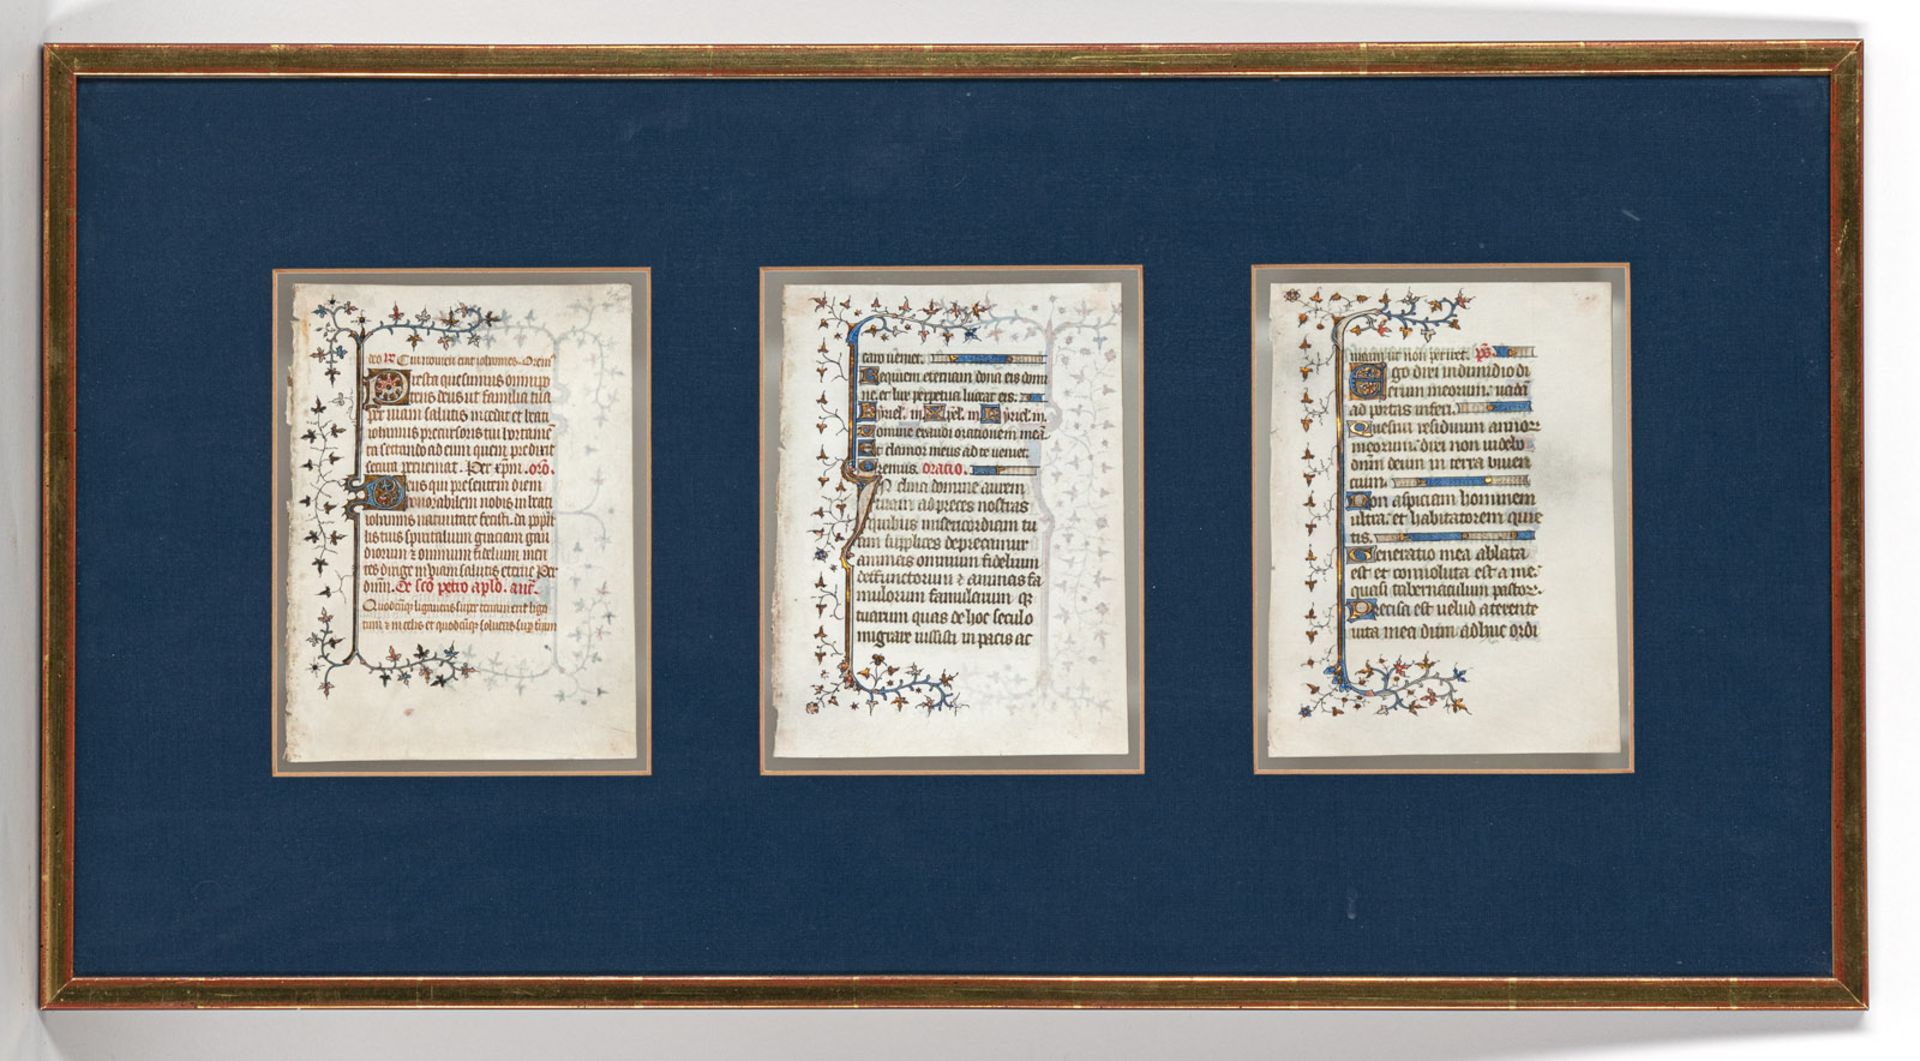 deo R Cui nomen erat iohannes. Orem9
Presta quesumus omnipo
tens deus ut familia tua
per uiam salutis incedat et beati
iohannis precursoris tui hortamē
ta sectando ad eum quem predixit
secura perueniat. Per xp̄m. orō.
Deus qui presentem diem
honorabilem nobis in beati
iohannis natiuitate fecisti. da popu
lis tuis spiritalium graciam gau
diorum ⁊ omnium fidelium men
tes dirige in uiam salutis eterne Per
dn̄m. De sc̄o petro aplo. anc̄.
Quodcūq ligaueris super terram erit liga
tum ⁊ in celis et quodcūq solueris sup terram
tuo ueniet.
Requiem eternam dona eis domi
ne. et lux perpetua luceat eis.
Kyriel. m Xp̄el. m Kyriel. m.
Domine exaudi orationem meā
Et clamor meus ad te ueniet.
Oremus. oratio.
Inclina domine aurem
tuam ad preces nostras
quibus misericordiam tu
am supplices deprecamur
animas omnium fidelium
deffunctorum ⁊ animas fa
mulorum famularum q̄
tuarum quas de hoc seculo
migrare iussisti in pacis ac
meam ut non periret. p̄s.
Ego dixi in dimidio di
erum meorum: uadā
ad portas inferi.
Quesiui residuum annor
meorum: dixi non uidebo
dn̄m deum in terra uiuen
cium.
Non aspiciam hominem
ultra. et habitatorem quie
tis.
Generatio mea ablata
est et conuoluta est a me.
quasi tabernaculum pastor.
Precisa est uelud a texente
uita mea dum adhuc ordi